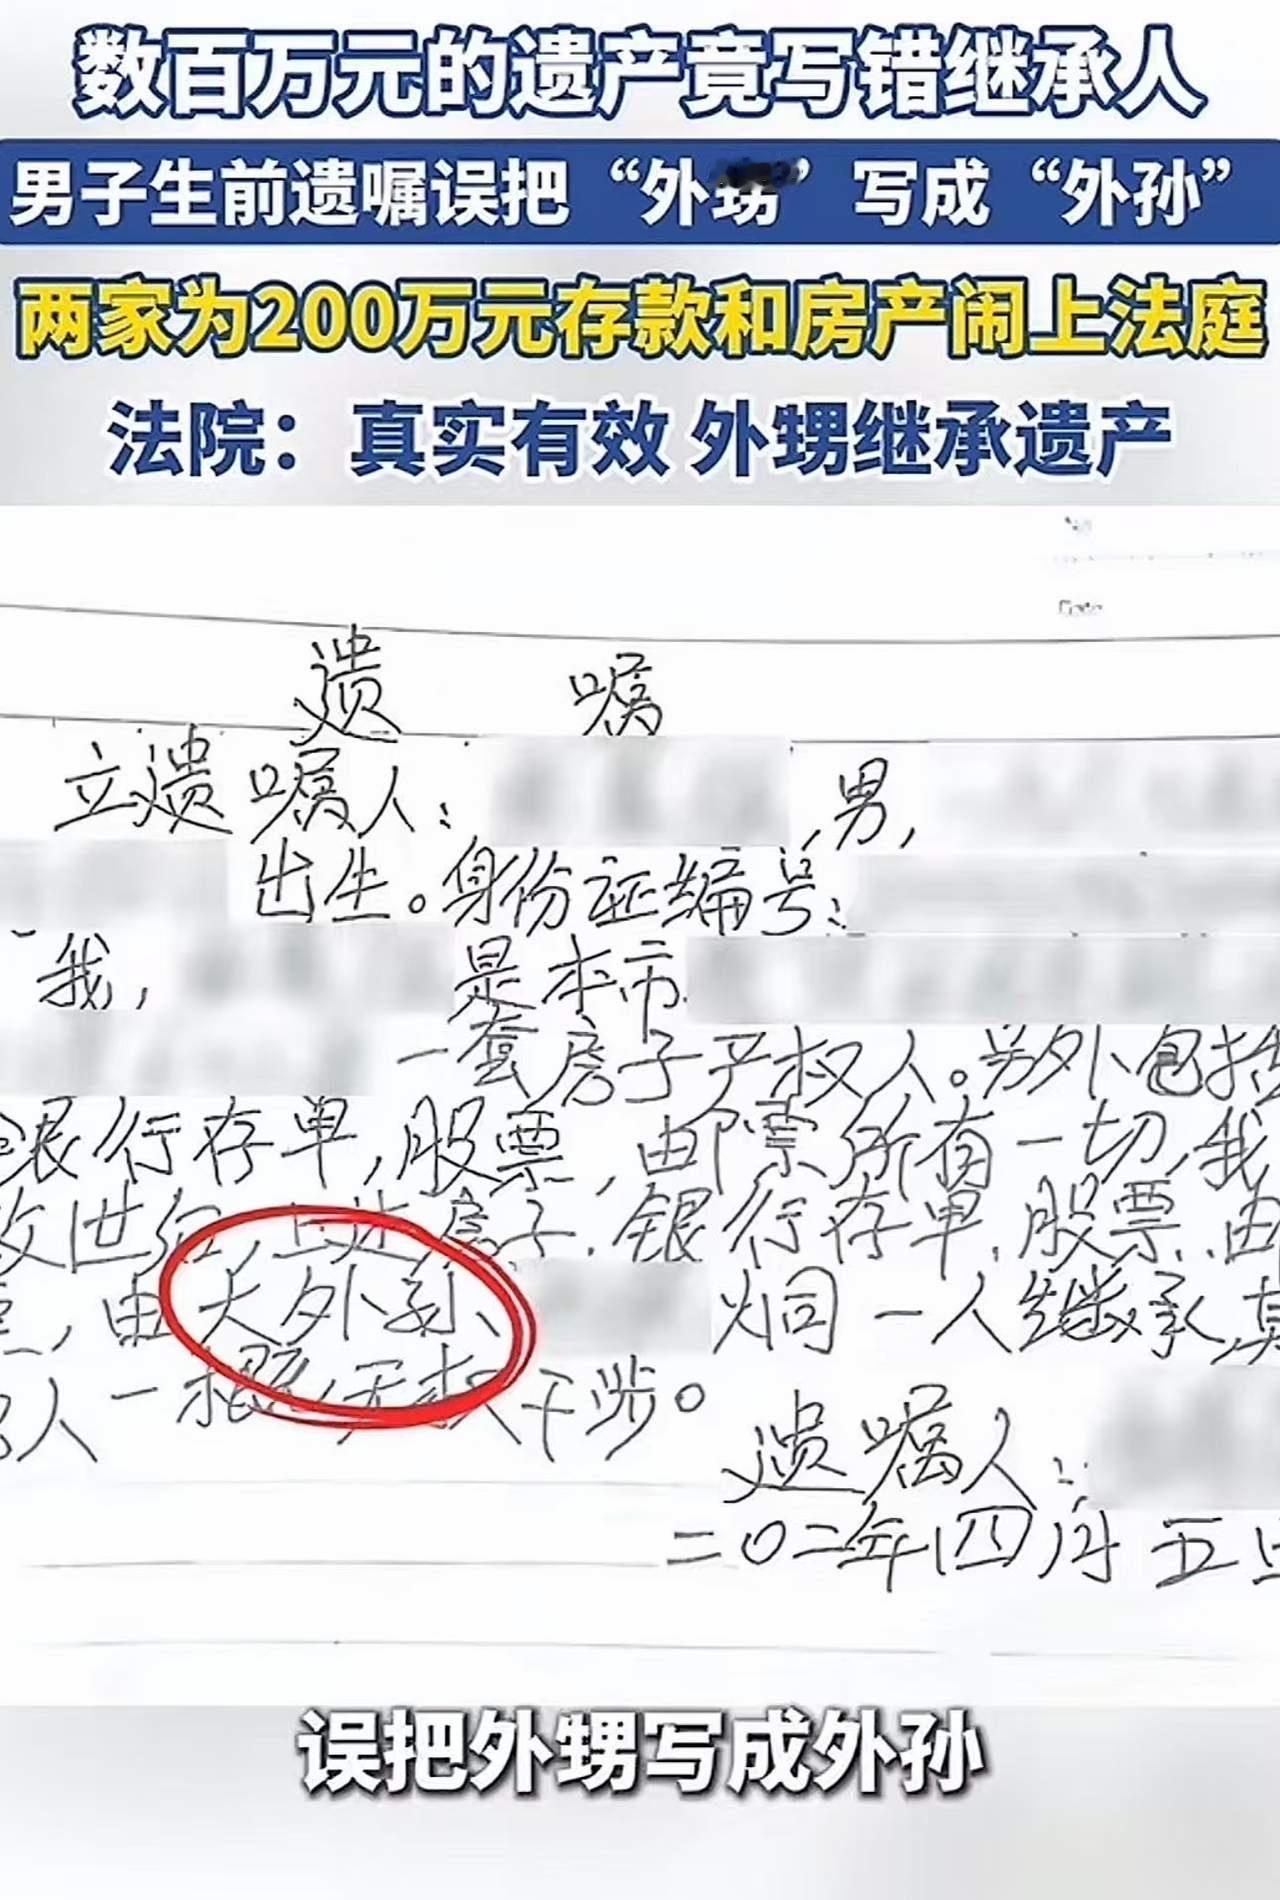 数百万元的遗产竟写错继承人
男子生前遗嘱误把“外甥”写成“外孙”
两家为200万元存款和房产闹上法庭
法院：真实有效 外甥继承遗产
Date
遗 嘱
立遗嘱人： ，男，
出生。身份证编号：
我， 是本市
一套房子产权人。另外包括
银行存单，股票，邮票所有一切，我
故世后，上述房子，银行存单，股票，由
，由大外孙 炯一人继承，其
人一概无权干涉。
遗嘱人：
二〇二年四月五日
误把外甥写成外孙